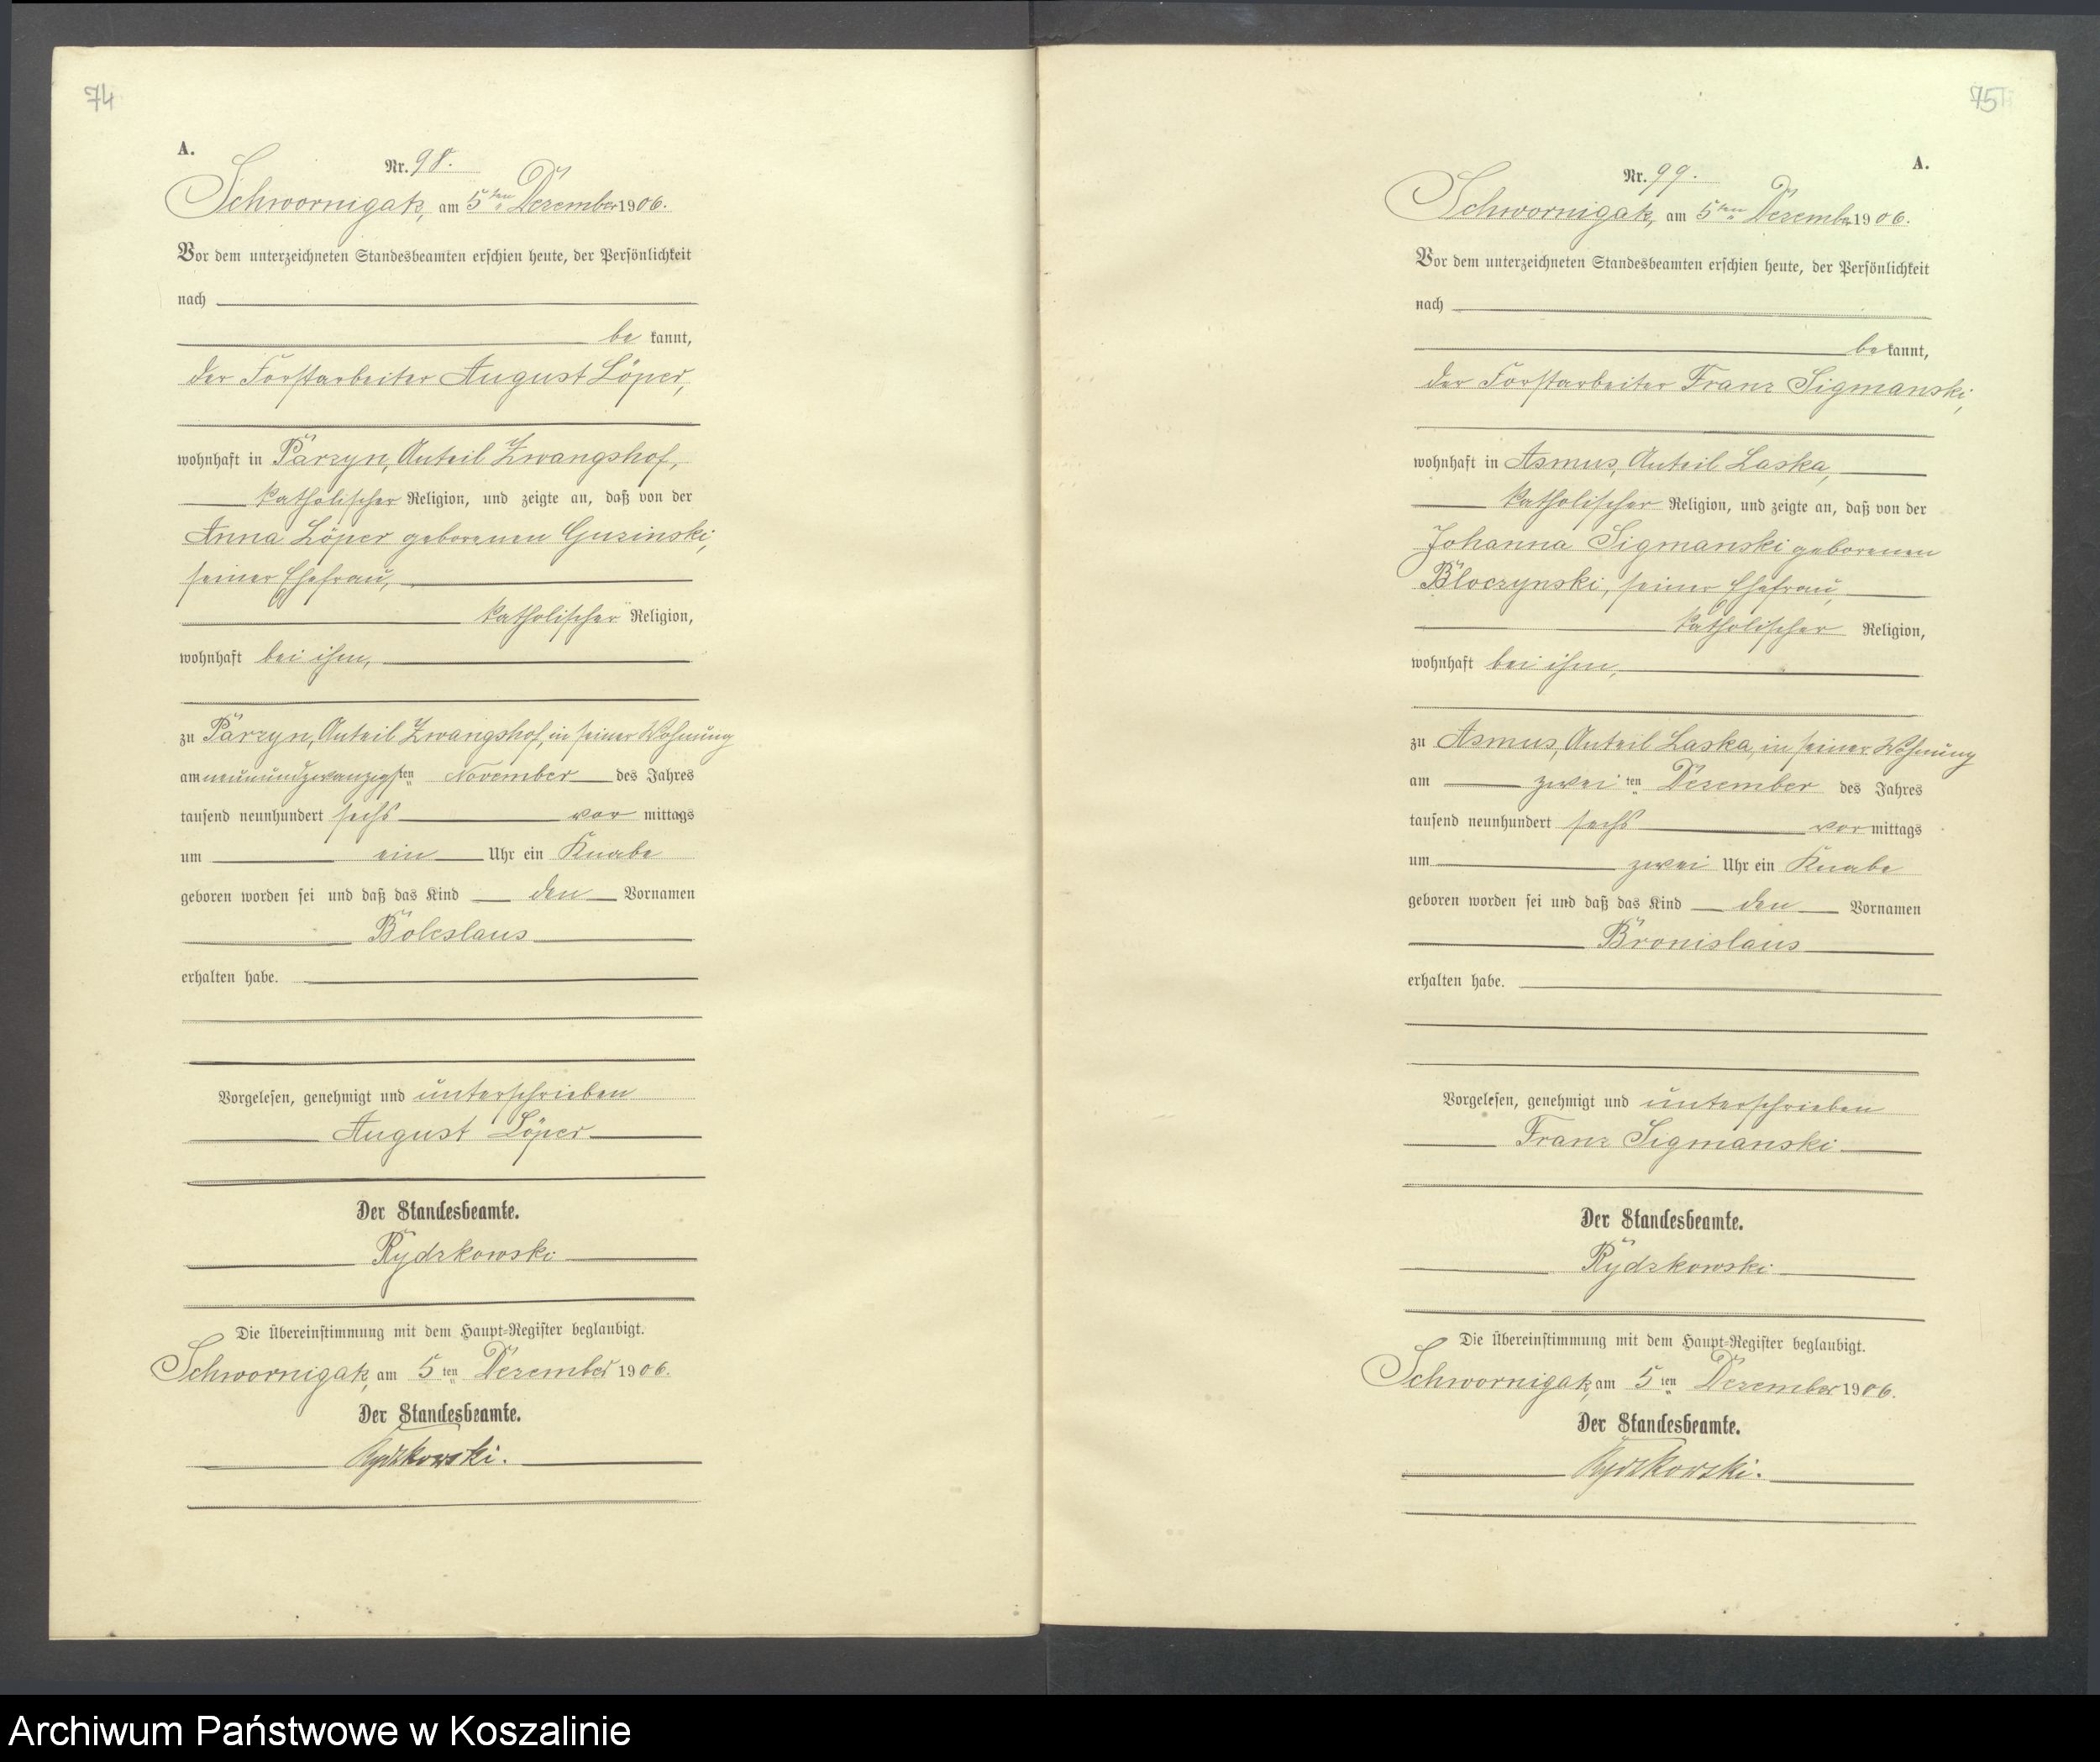 74
A.
Nr. 98.
Schwornigatz, am 5ten Dezember 1906.
Vor dem unterzeichneten Standesbeamten erschien heute, der Persönlichkeit
nach
be kannt,
der Forstarbeiter August Löper,
wohnhaft in Parzyn, Anteil Zwangshof,
katholischer Religion, und zeigte an, daß von der
Anna Löper geborenen Guzinski,
seiner Ehefrau,
katholischer Religion,
wohnhaft bei ihm,
zu Parzyn, Anteil Zwangshof, in seiner Wohnung
am neunundzwanzigsten November des Jahres
tausend neunhundert sechs vor mittags
um ein Uhr ein Knabe
geboren worden sei und daß das Kind den Vornamen
Boleslaus
erhalten habe.
Vorgelesen, genehmigt und unterschrieben
August Löper
Der Standesbeamte.
Rydzkowski
Die Übereinstimmung mit dem Haupt-Register beglaubigt.
Schwornigatz, am 5ten Dezember 1906.
Der Standesbeamte.
Rydzkowski.
75
A.
Nr. 99.
Schwornigatz, am 5ten Dezember 1906.
Vor dem unterzeichneten Standesbeamten erschien heute, der Persönlichkeit
nach
be kannt,
der Forstarbeiter Franz Sigmanski,
wohnhaft in Asmus, Anteil Laska,
katholischer Religion, und zeigte an, daß von der
Johanna Sigmanski geborenen
Bloczynski, seiner Ehefrau,
katholischer Religion,
wohnhaft bei ihm,
zu Asmus, Anteil Laska, in seiner Wohnung
am zweiten Dezember des Jahres
tausend neunhundert sechs vor mittags
um zwei Uhr ein Knabe
geboren worden sei und daß das Kind den Vornamen
Bronislaus
erhalten habe.
Vorgelesen, genehmigt und unterschrieben
Franz Sigmanski
Der Standesbeamte.
Rydzkowski
Die Übereinstimmung mit dem Haupt-Register beglaubigt.
Schwornigatz, am 5ten Dezember 1906.
Der Standesbeamte.
Rydzkowski.
Archiwum Państwowe w Koszalinie